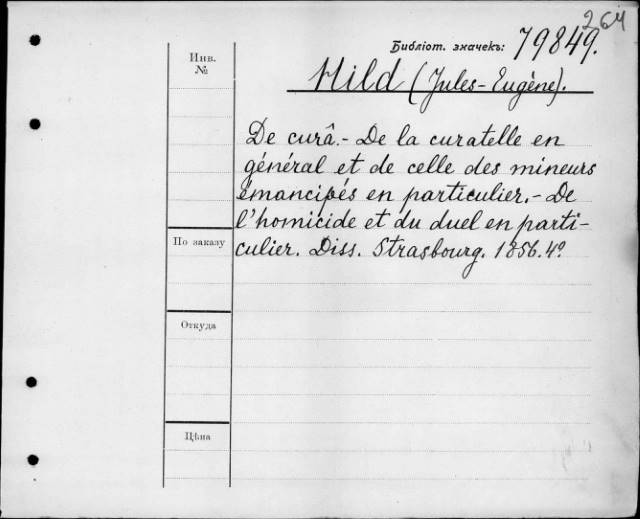 264
Библіот. значекъ: 79849.
Инв.
№
Hild (Jules-Eugène).
De curâ.- De la curatelle en
général et de celle des mineurs
émancipés en particulier.- De
l'homicide et du duel en parti-
culier. Diss. Strasbourg. 1856. 4º
По заказу
Откуда
Цѣна